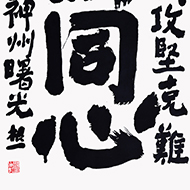 攻堅克難
同心
神州曙光